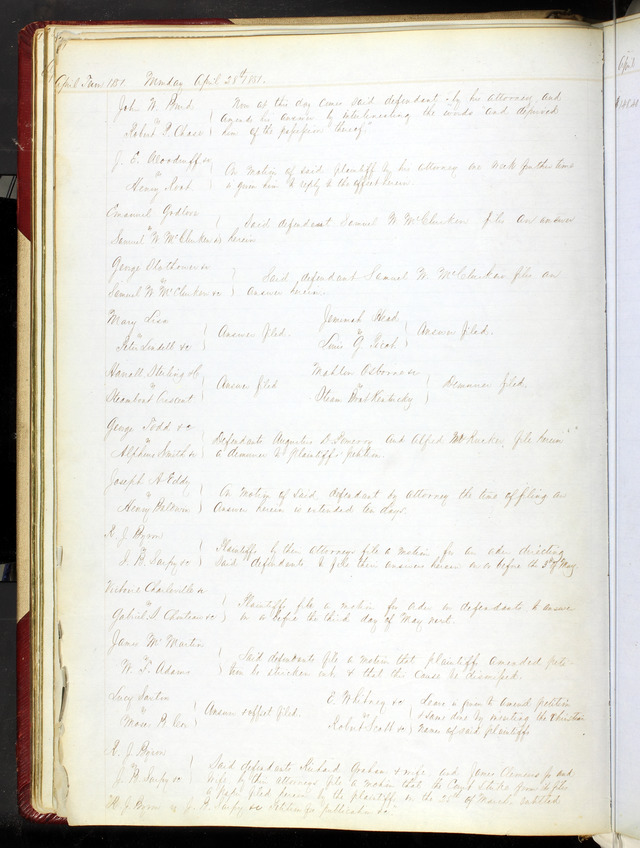 April Term 1851. Monday April 28th 1851.
John W. Bird
vs
Robert P. Chase
Now at this day comes said defendant by his attorney and
amends his answer by interlineating the words "and deprived
him of the possession thereof."
J. E. Woodruff &c
vs
Henry Root
On motion of said plaintiff by his attorney one week further time
is given him to reply to the offset herein.
Emanuel
vs
Samuel W. McClurken &c
Said defendant Samuel W. McClurken files an answer
herein.
George Strothower &c
vs
Samuel W. McClurken &c
Said defendant Samuel W. McClurken files an
answer herein.
Mary Lisa
vs
Peter Lindell &c
Answer filed.
Jemimah Head
vs
G.
Answer filed.
Sterling &c
vs
Steamboat Crescent
Answer filed
Mahlon Osborne &c
vs
Steam Boat Kentucky
Demurrer filed.
George Todd &c
vs
Alpheus Smith &c
Defendants Augustus D. and Alfred Rucker, file herein
a demurrer to Plaintiffs petition.
Joseph A. Eddy
vs
Henry Baldwin
On motion of said defendant by attorney the time of filing an
answer herein is extended ten days.
R. J. Byrne
vs
J. B. Sarpy &c
Plaintiffs by their attorneys file a motion for an order directing
said defendants to file their answers herein on or before the 3d of May.
Charleville &c
vs
Gabriel S. Chouteau &c
Plaintiffs file a motion for order on defendants to answer
on or before the third day of May next.
James McMartin
vs
W. T. Adams
Said defendants file a motion that plaintiffs amended peti-
tion be stricken out, & that the cause be dismissed.
Lucy
vs
B.
Answer & offset filed.
E. Whitney &c
vs
Robert Scott &c
Leave is given to amend petition
& same done by inserting the Christian
names of said plaintiffs
R. J. Byrne
vs
J. B. Sarpy &c
Said defendants Richard Graham & wife, and James Clemens jr and
wife, by their attorneys file a motion that the Court strike from the files
a paper filed herein by the plaintiffs on the 25th of March, entitled
"R. J. Byrne vs J. B. Sarpy &c Petition for publication &c"